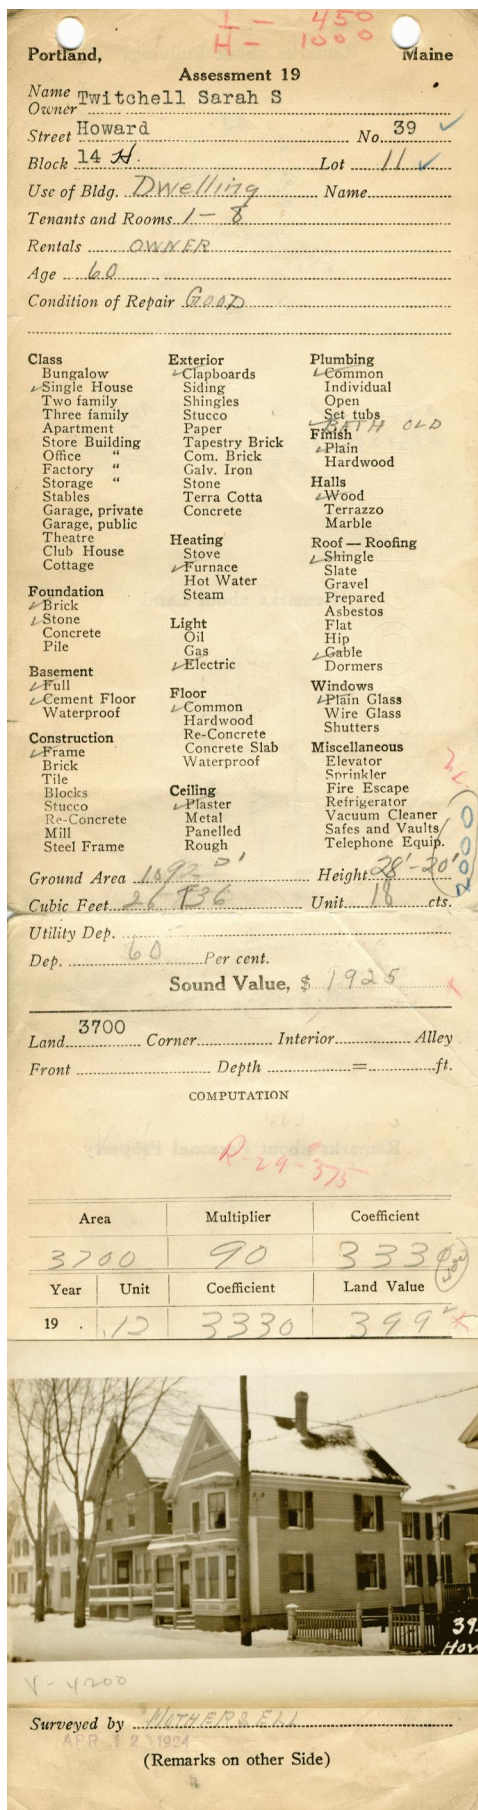 L - 450
H - 1000
Portland, Maine
Assessment 19
Name
Owner Twitchell Sarah S
Street Howard No. 39
Block 14 H. Lot 11
Use of Bldg. Dwelling Name
Tenants and Rooms 1 - 8
Rentals OWNER
Age 60
Condition of Repair GOOD
Class
Bungalow
Single House
Two family
Three family
Apartment
Store Building
Office "
Factory "
Storage "
Stables
Garage, private
Garage, public
Theatre
Club House
Cottage
Foundation
Brick
Stone
Concrete
Pile
Basement
Full
Cement Floor
Waterproof
Construction
Frame
Brick
Tile
Blocks
Stucco
Re-Concrete
Mill
Steel Frame
Exterior
Clapboards
Siding
Shingles
Stucco
Paper
Tapestry Brick
Com. Brick
Galv. Iron
Stone
Terra Cotta
Concrete
Heating
Stove
Furnace
Hot Water
Steam
Light
Oil
Gas
Electric
Floor
Common
Hardwood
Re-Concrete
Concrete Slab
Waterproof
Ceiling
Plaster
Metal
Panelled
Rough
Plumbing
Common
Individual
Open
Set tubs
BATH OLD
Finish
Plain
Hardwood
Halls
Wood
Terrazzo
Marble
Roof — Roofing
Shingle
Slate
Gravel
Prepared
Asbestos
Flat
Hip
Gable
Dormers
Windows
Plain Glass
Wire Glass
Shutters
Miscellaneous
Elevator
Sprinkler
Fire Escape
Refrigerator
Vacuum Cleaner
Safes and Vaults
Telephone Equip.
2000
Ground Area 1092 Height 28'-20'
Cubic Feet Unit 18 cts.
Utility Dep.
Dep. 60 Per cent.
Sound Value, $ 1925
Land 3700 Corner Interior Alley
Front Depth = ft.
COMPUTATION
R-29-375
Area Multiplier Coefficient
3700 90 3330
Year Unit Coefficient Land Value
19 . .12 3330 399
39
How
V-4200
Surveyed by MOTHERSELL
APR 12 1924
(Remarks on other Side)